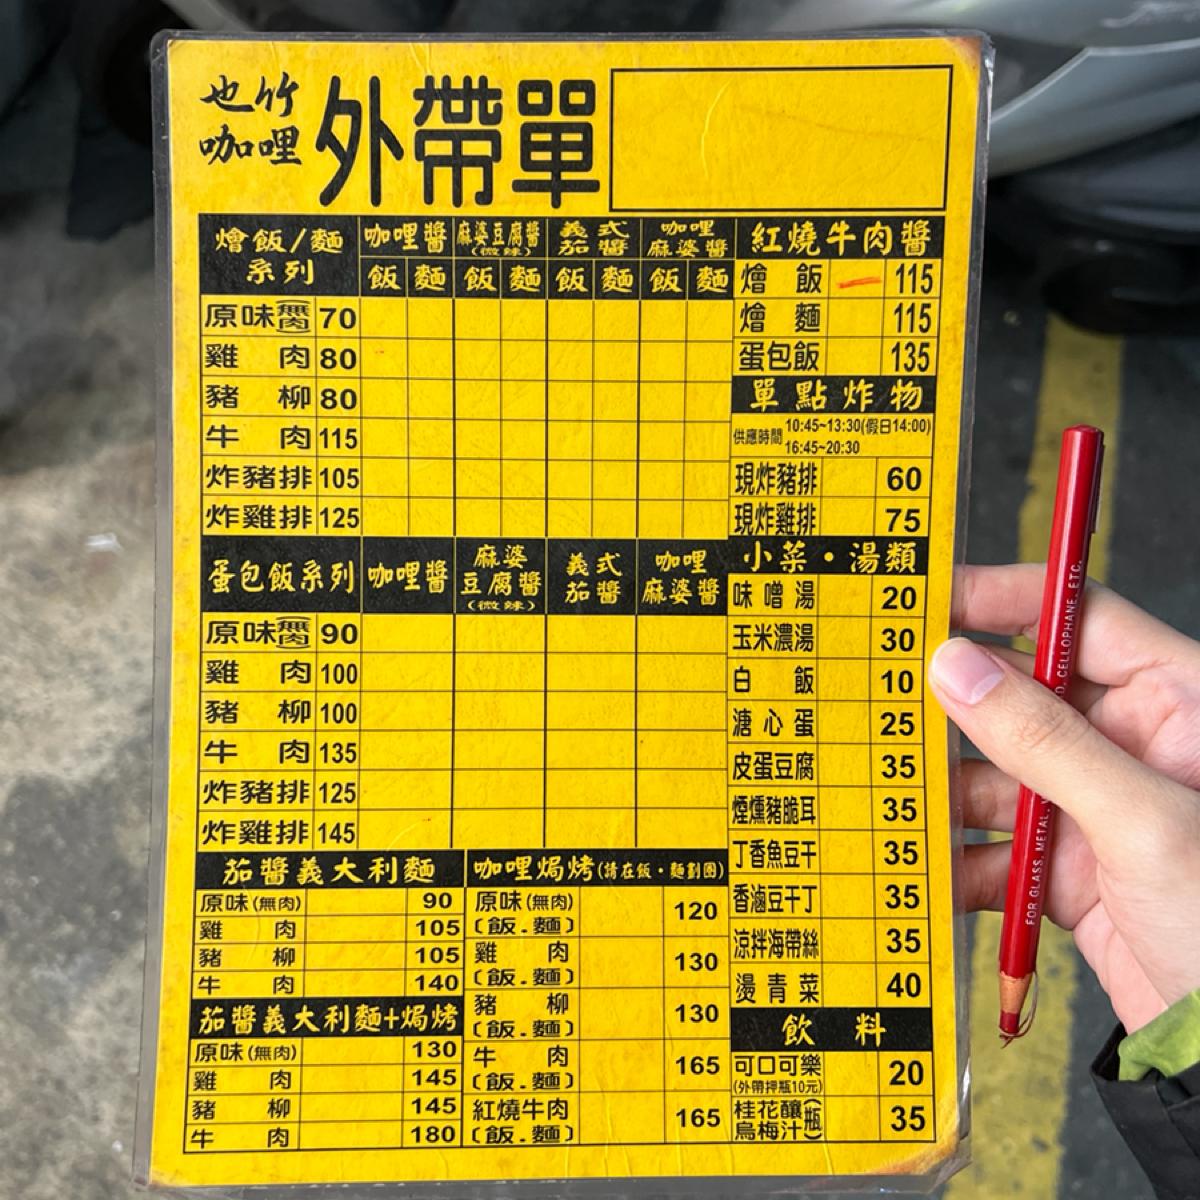 也竹
咖哩
外帶單
燴飯/麵
系列
咖哩醬
麻婆豆腐醬
(微辣)
義式
茄醬
咖哩
麻婆醬
飯 麵 飯 麵 飯 麵 飯 麵
原味(無肉) 70
雞肉 80
豬柳 80
牛肉 115
炸豬排 105
炸雞排 125
蛋包飯系列
咖哩醬
麻婆
豆腐醬
(微辣)
義式
茄醬
咖哩
麻婆醬
原味(無肉) 90
雞肉 100
豬柳 100
牛肉 135
炸豬排 125
炸雞排 145
茄醬義大利麵
原味(無肉) 90
雞肉 105
豬柳 105
牛肉 140
茄醬義大利麵+焗烤
原味(無肉) 130
雞肉 145
豬柳 145
牛肉 180
咖哩焗烤(請在飯・麵劃圈)
原味(無肉)
(飯.麵) 120
雞肉
(飯.麵) 130
豬柳
(飯.麵) 130
牛肉
(飯.麵) 165
紅燒牛肉
(飯.麵) 165
紅燒牛肉醬
燴飯 115
燴麵 115
蛋包飯 135
單點炸物
供應時間 10:45~13:30(假日14:00)
16:45~20:30
現炸豬排 60
現炸雞排 75
小菜・湯類
味噌湯 20
玉米濃湯 30
白飯 10
溏心蛋 25
皮蛋豆腐 35
煙燻豬脆耳 35
丁香魚豆干 35
香滷豆干丁 35
涼拌海帶絲 35
燙青菜 40
飲料
可口可樂 20
(外帶押瓶10元)
桂花釀
烏梅汁(瓶) 35
FOR GLASS, METAL, CELLOPHANE, ETC.